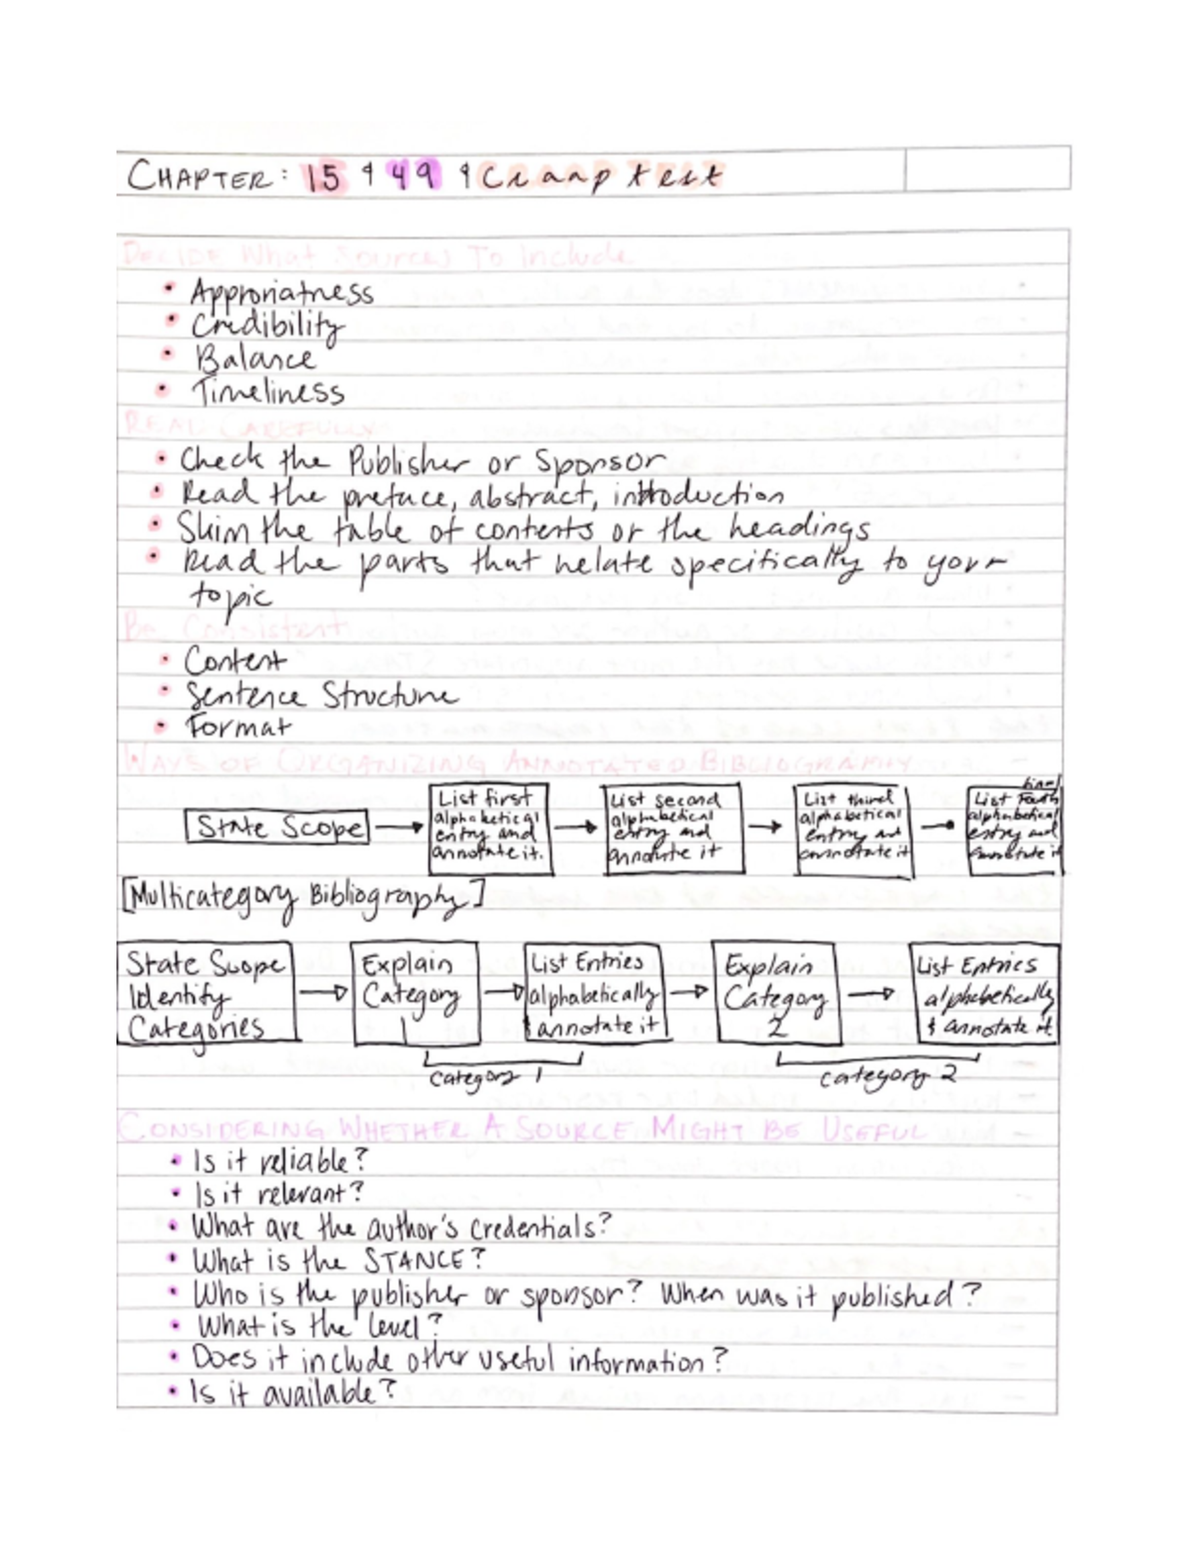 CHAPTER: 15 & 49 & Craap test
DECIDE What Sources To Include
• Approriatness
• Credibility
• Balance
• Timeliness
READ CAREFULLY
• Check the Publisher or Sponsor
• Read the preface, abstract, introduction
• Skim the table of contents or the headings
• Read the parts that relate specifically to your
topic
Be Consistent
• Content
• Sentence Structure
• Format
WAYS OF ORGANIZING ANNOTATED BIBLIOGRAPHY
State Scope
List first
alphabetical
entry and
annotate it.
List second
alphabetical
entry and
annotate it
List third
alphabetical
entry and
annotate it
final
List
alphabetical
entry and
annotate it
[Multicategory Bibliography]
State Scope
Identify
Categories
Explain
Category
1
List Entries
alphabetically
& annotate it
Explain
Category
2
List Entries
alphabetically
& annotate it
category 1
category 2
CONSIDERING WHETHER A SOURCE MIGHT BE USEFUL
• Is it reliable?
• Is it relevant?
• What are the author's credentials?
• What is the STANCE?
• Who is the publisher or sponsor? When was it published?
• What is the level?
• Does it include other useful information?
• Is it available?